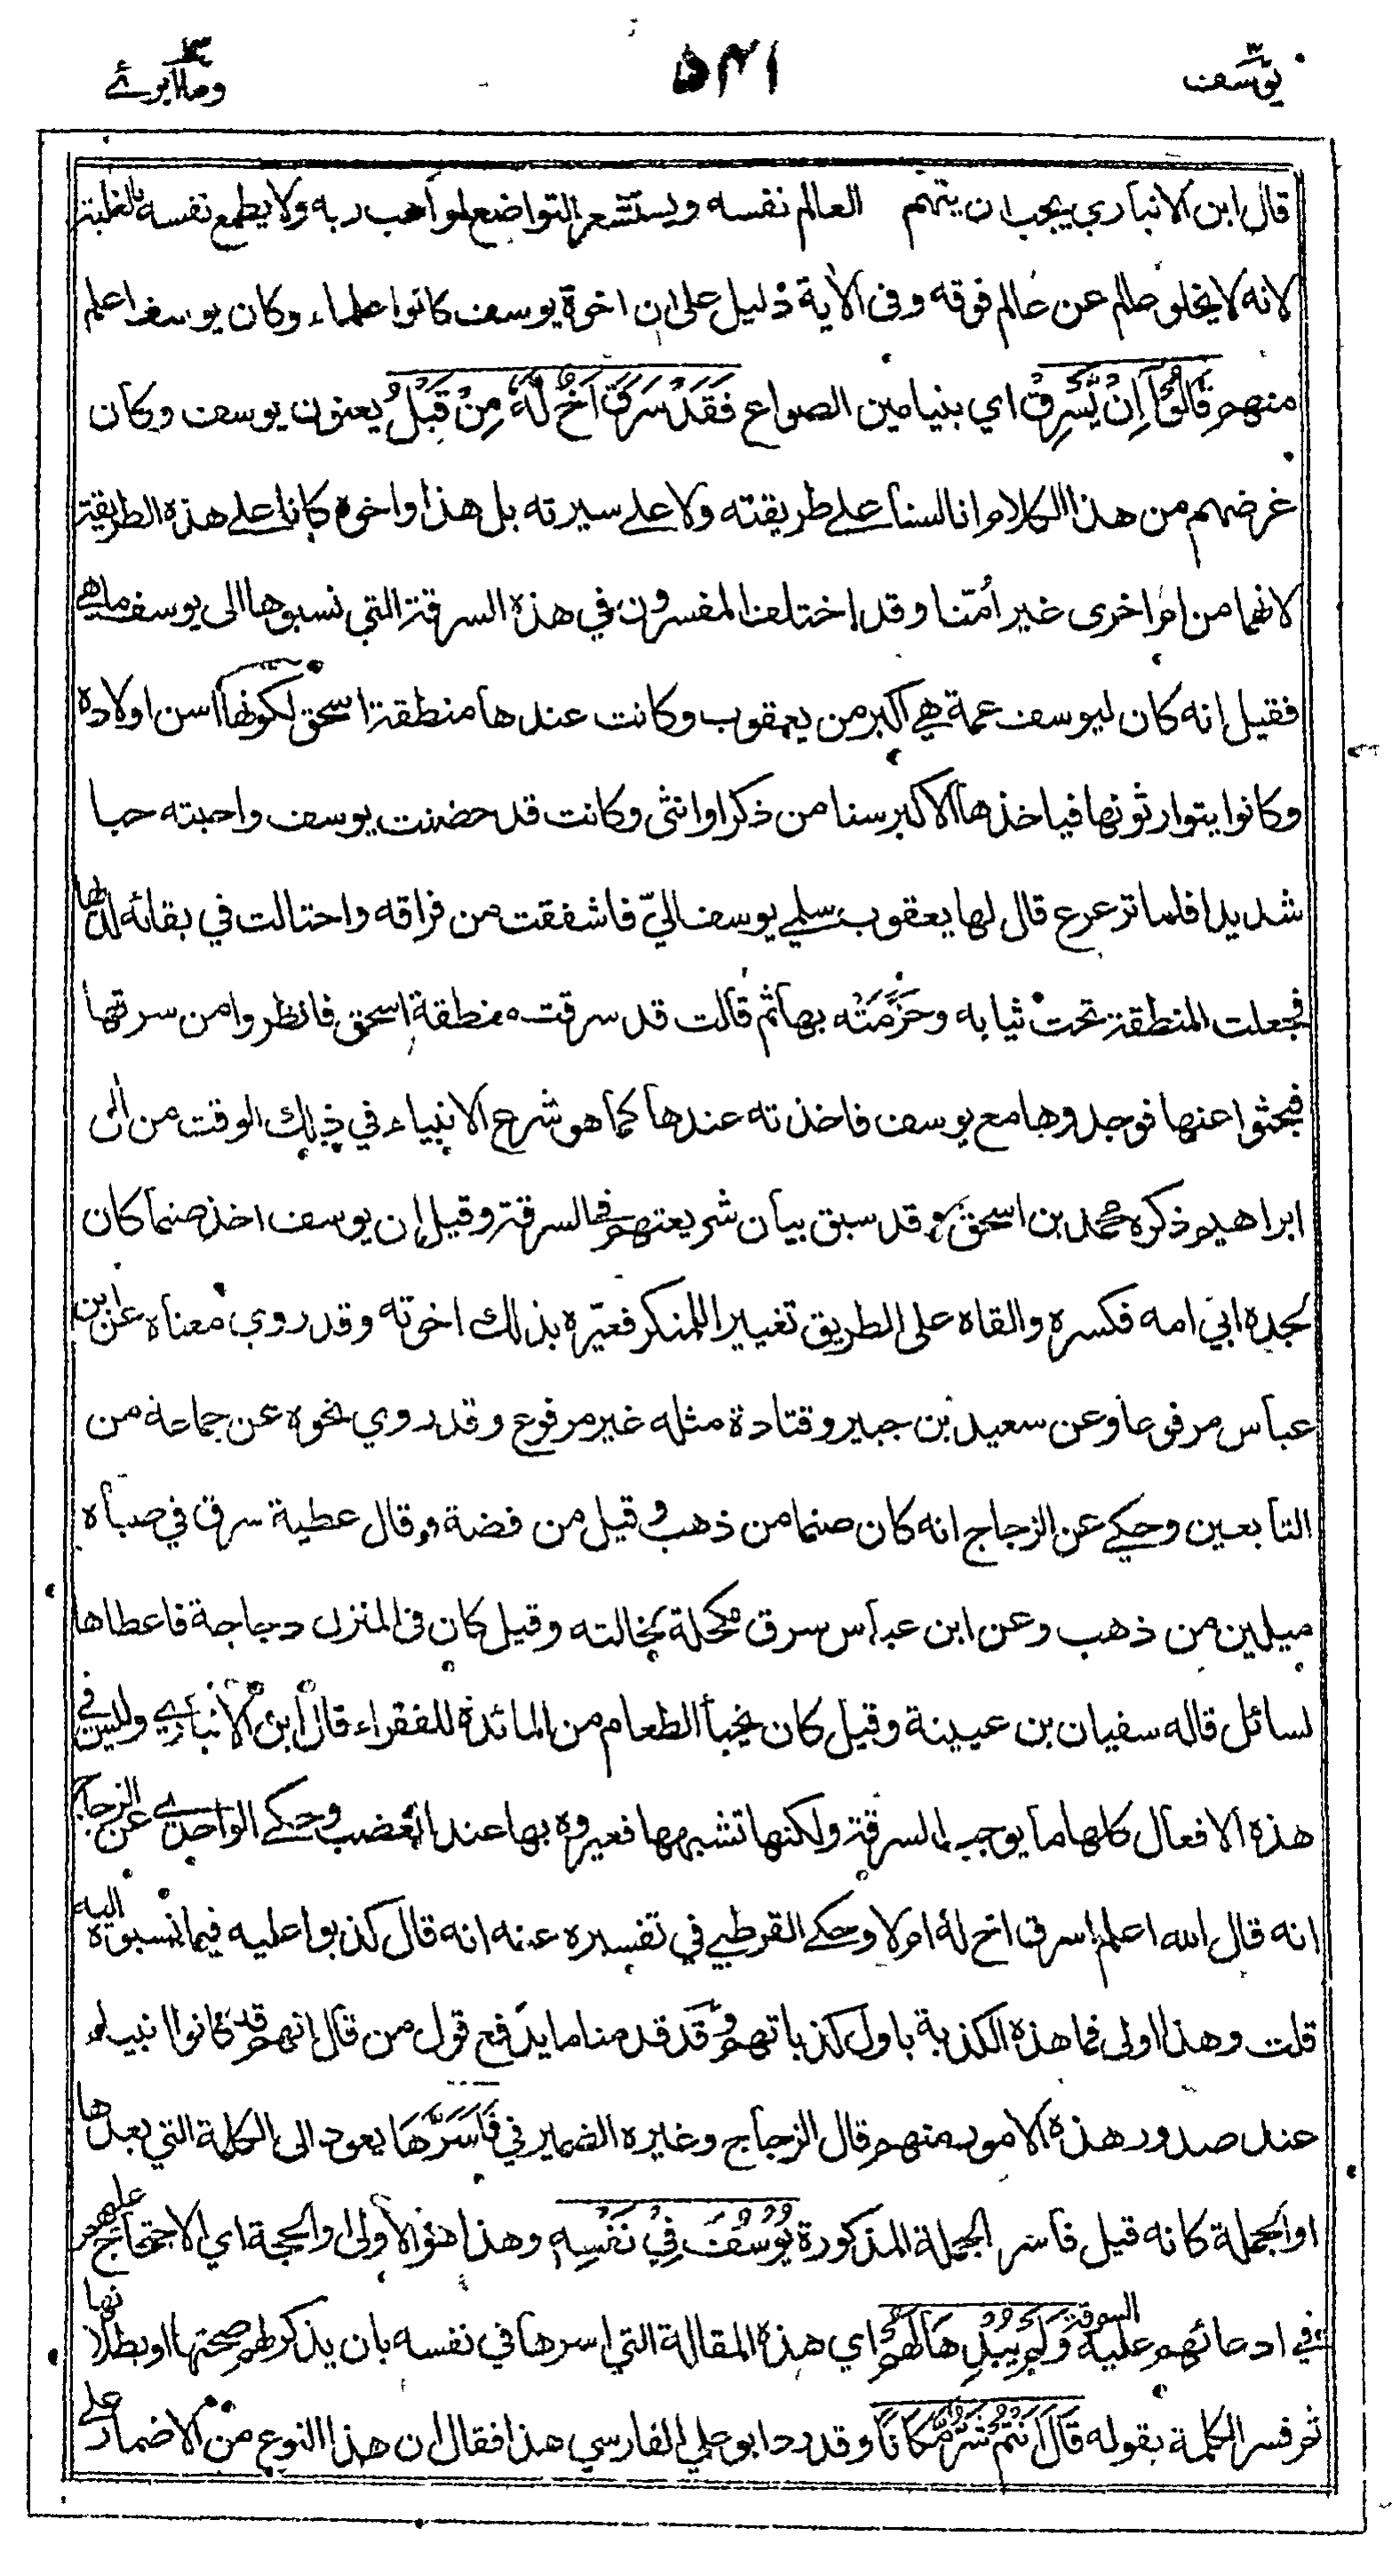 يوسف ١٢
٥٤١
وما ابرئ ١٣
قال ابن الانباري يجب ان يتهم العالم نفسه ويستشعر التواضع لمواهب ربه ولا يطمع نفسه بالغلبة
لانه لا يخلو عالم عن عالم فوقه وفى الاية دليل على ان اخوة يوسف كانوا علماء وكان يوسف اعلم
منهم قَالُوٓا اِنْ يَّسْرِقْ اي بنيامين الصواع فَقَدْ سَرَقَ اَخٌ لَّهٗ مِنْ قَبْلُ يعنون يوسف وكان
غرضهم من هذا الكلام انا لسنا على طريقته ولا على سيرته بل هذا واخوه كانا على هذه الطريقة
لانهما من ام اخرى غير امّنا وقد اختلف المفسرون في هذه السرقة التي نسبوها الى يوسف ما هي
فقيل انه كان ليوسف عمة هي اكبر من يعقوب وكانت عندها منطقة اسحق لكونها اسن اولاده
وكانوا يتوارثونها فياخذها الاكبر سنا من ذكر او انثى وكانت قد حضنت يوسف واحبته حبا
شديدا فلما ترعرع قال لها يعقوب سلمي يوسف اليّ فاشفقت من فراقه واحتالت في بقائه لديها
فجعلت المنطقة تحت ثيابه وحَزَّمَتْه بها ثم قالت قد سرقت منطقة اسحق فانظروا من سرقها
فبحثوا عنها فوجدوها مع يوسف فاخذته عندها كما هو شرع الانبياء في ذلك الوقت من ال
ابراهيم ذكره محمد بن اسحق وقد سبق بيان شريعتهم في السرقة وقيل ان يوسف اخذ صنما كان
لجده ابي امه فكسره والقاه على الطريق تغييرا للمنكر فعيّره بذلك اخوته وقد روي معناه عن ابن
عباس مرفوعا وعن سعيد بن جبير وقتادة مثله غير مرفوع وقد روي نحوه عن جماعة من
التابعين وحكي عن الزجاج انه كان صنما من ذهب وقيل من فضة وقال عطية سرق في صباه
ميلين من ذهب وعن ابن عباس سرق مكحلة لخالته وقيل كان فى المنزل دجاجة فاعطاها
لسائل قاله سفيان بن عيينة وقيل كان يخبأ الطعام من المائدة للفقراء قال ابن الانباري وليس في
هذه الافعال كلها ما يوجب السرقة ولكنها تشبهها فعيروه بها عند الغضب وحكى الواحدي عن الزجاج
انه قال الله اعلم اسرق اخ له ام لا وحكى القرطبي في تفسيره عنه انه قال كذبوا عليه فيما نسبوه اليه
قلت وهذا اولى فما هذه الكذبة باول كذباتهم وقد قدمنا ما يدفع قول من قال انهم قد كانوا انبياء
عند صدور هذه الامور منهم قال الزجاج وغيره الضمير في فَاَسَرَّهَا يعود الى الكلمة التي بعدها
او الجملة كانه قيل فاسر الجملة المذكورة يُوْسُفُ فِيْ نَفْسِهٖ وهذا هو الاولى او الحجة اي الاحتجاج عليهم
في ادعائهم عليه السرقة وَلَمْ يُبْدِهَا لَهُمْ اي هذه المقالة التي اسرها في نفسه بان يذكر لهم صحتها او بطلانها
ثم فسر الكلمة بقوله قَالَ اَنْتُمْ شَرٌّ مَّكَانًا وقد رد ابو علي الفارسي هذا فقال ان هذا النوع من الاضمار على